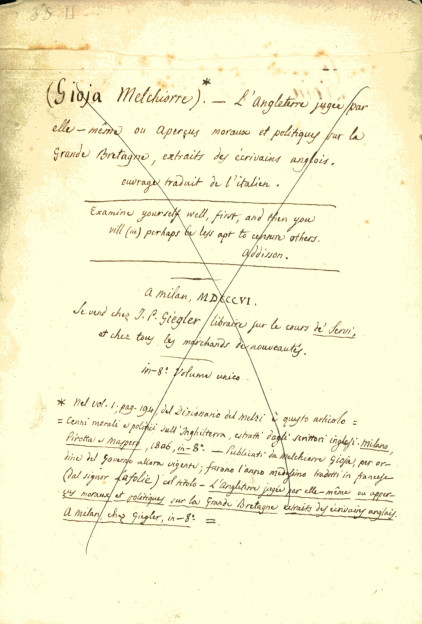 55 II
(Gioja Melchiorre).* — L'Angleterre jugée par
elle-même ou Aperçus moraux et politiques sur la
Grande Bretagne, extraits des écrivains anglois.
ouvrage traduit de l'italien.
Examine yourself well, first, and then you
vill (in) perhaps be less apt to censure others.
Addisson.
A milan, MDCCCVI.
Se vend chez J. P. Giegler libraire sur le cours de' Servi,
et chez tous les marchands de nouveautés.
in-8° Volume unico.
* Nel vol. 1, pag. 194, del Dizionario del Melzi è questo articolo =
= Cenni morali e politici sull'Inghilterra, estratti dagli scrittori inglesi. Milano,
Pirotta e Maspero, 1806, in-8° — Publicati da Melchiorre Gioja, per or-
dine del Governo allora vigente; furono l'anno medesimo tradotti in francese
(dal signor Lafolie) col titolo — L'Angleterre jugée par elle-même ou apper-
çus moraux et politiques sur la Grande Bretagne extraits des écrivains anglais.
A milan chez Giegler, in-8° =